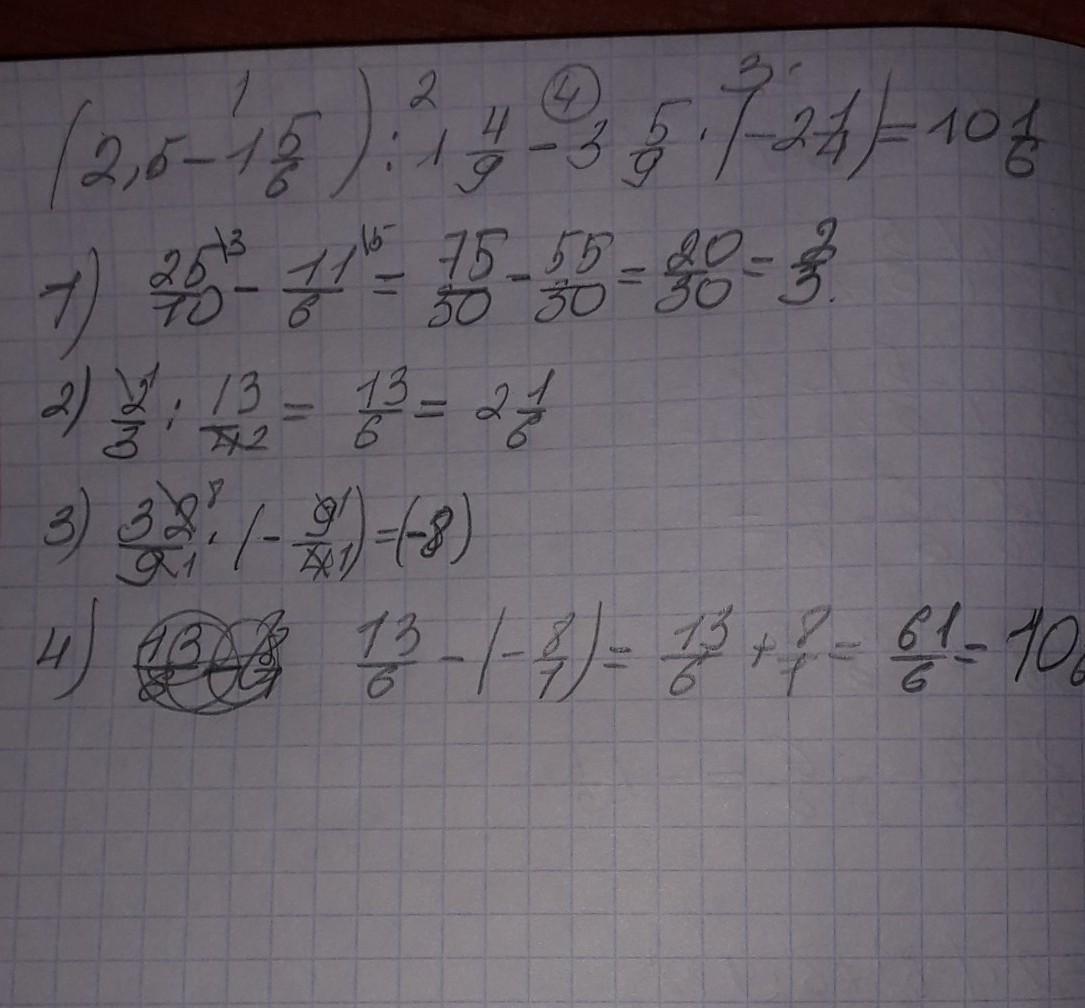 (2,5 - 1 5/6) : 1 4/9 - 3 5/9 · (-2 1/4) = 10 1/6
1 2 4 3
1) 25/10 \3 - 11/6 \5 = 75/30 - 55/30 = 20/30 = 2/3.
2) 2/3 1 : 13/4 2 = 13/6 = 2 1/6
3) 32/9 8 1 · (- 9/4 1 1) = (-8)
4) 13/6 - (- 8/1) = 13/6 + 8/1 = 61/6 = 10